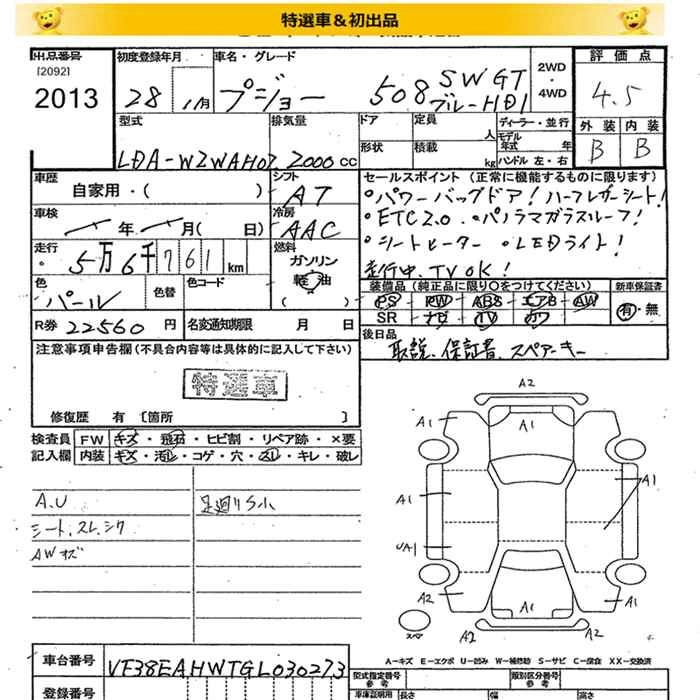 特選車&初出品
出品番号
[2092]
2013
初度登録年月
28年1月
車名・グレード
プジョー 508 SW GT
ブルーHDI
2WD・4WD
評価点
4.5
外装 内装
B B
型式
LDA-W2WAH02
排気量
2000 cc
ドア
定員
人
形状
積載
kg
ディーラー・並行
モデル年式 年
ハンドル 左・右
車歴
自家用・( )
シフト
AT
車検
年 月( 日)
冷房
AAC
走行
5万6千761km
燃料
ガソリン
軽油
( )
色
パール
色替
色コード
R券 22560 円
名変通知期限 月 日
セールスポイント(正常に機能するものに限ります)
・パワーバックドア!ハーフレザーシート!
・ETC2.0 ・パノラマガラスルーフ!
・シートヒーター ・LEDライト!
走行中、TV OK!
装備品(純正品に限り○をつけてください)
PS PW ABS エアB AW
SR ナビ TV カワ
新車保証書
有・無
後日品
取説、保証書、スペアーキー
注意事項申告欄(不具合内容等は具体的に記入して下さい)
特選車
修復歴 有 [箇所 ]
検査員記入欄
FW キズ・飛石・ヒビ割・リペア跡・×要
内装 キズ・汚レ・コゲ・穴・スレ・キレ・破レ
A.U
足廻りS小
シート、スレ、シワ
AWキズ
A2
A1
A1
A1
A1
UA1
A2
A1
A1
A2
A2
スペア
A-キズ E-エクボ U-凹み W-補修跡 S-サビ C-腐食 XX-交換済
車台番号
VF38EAHWTGL030273
型式指定番号
参考
類別区分番号
参考
登録番号
車庫証明用
参考
長さ
幅
高さ